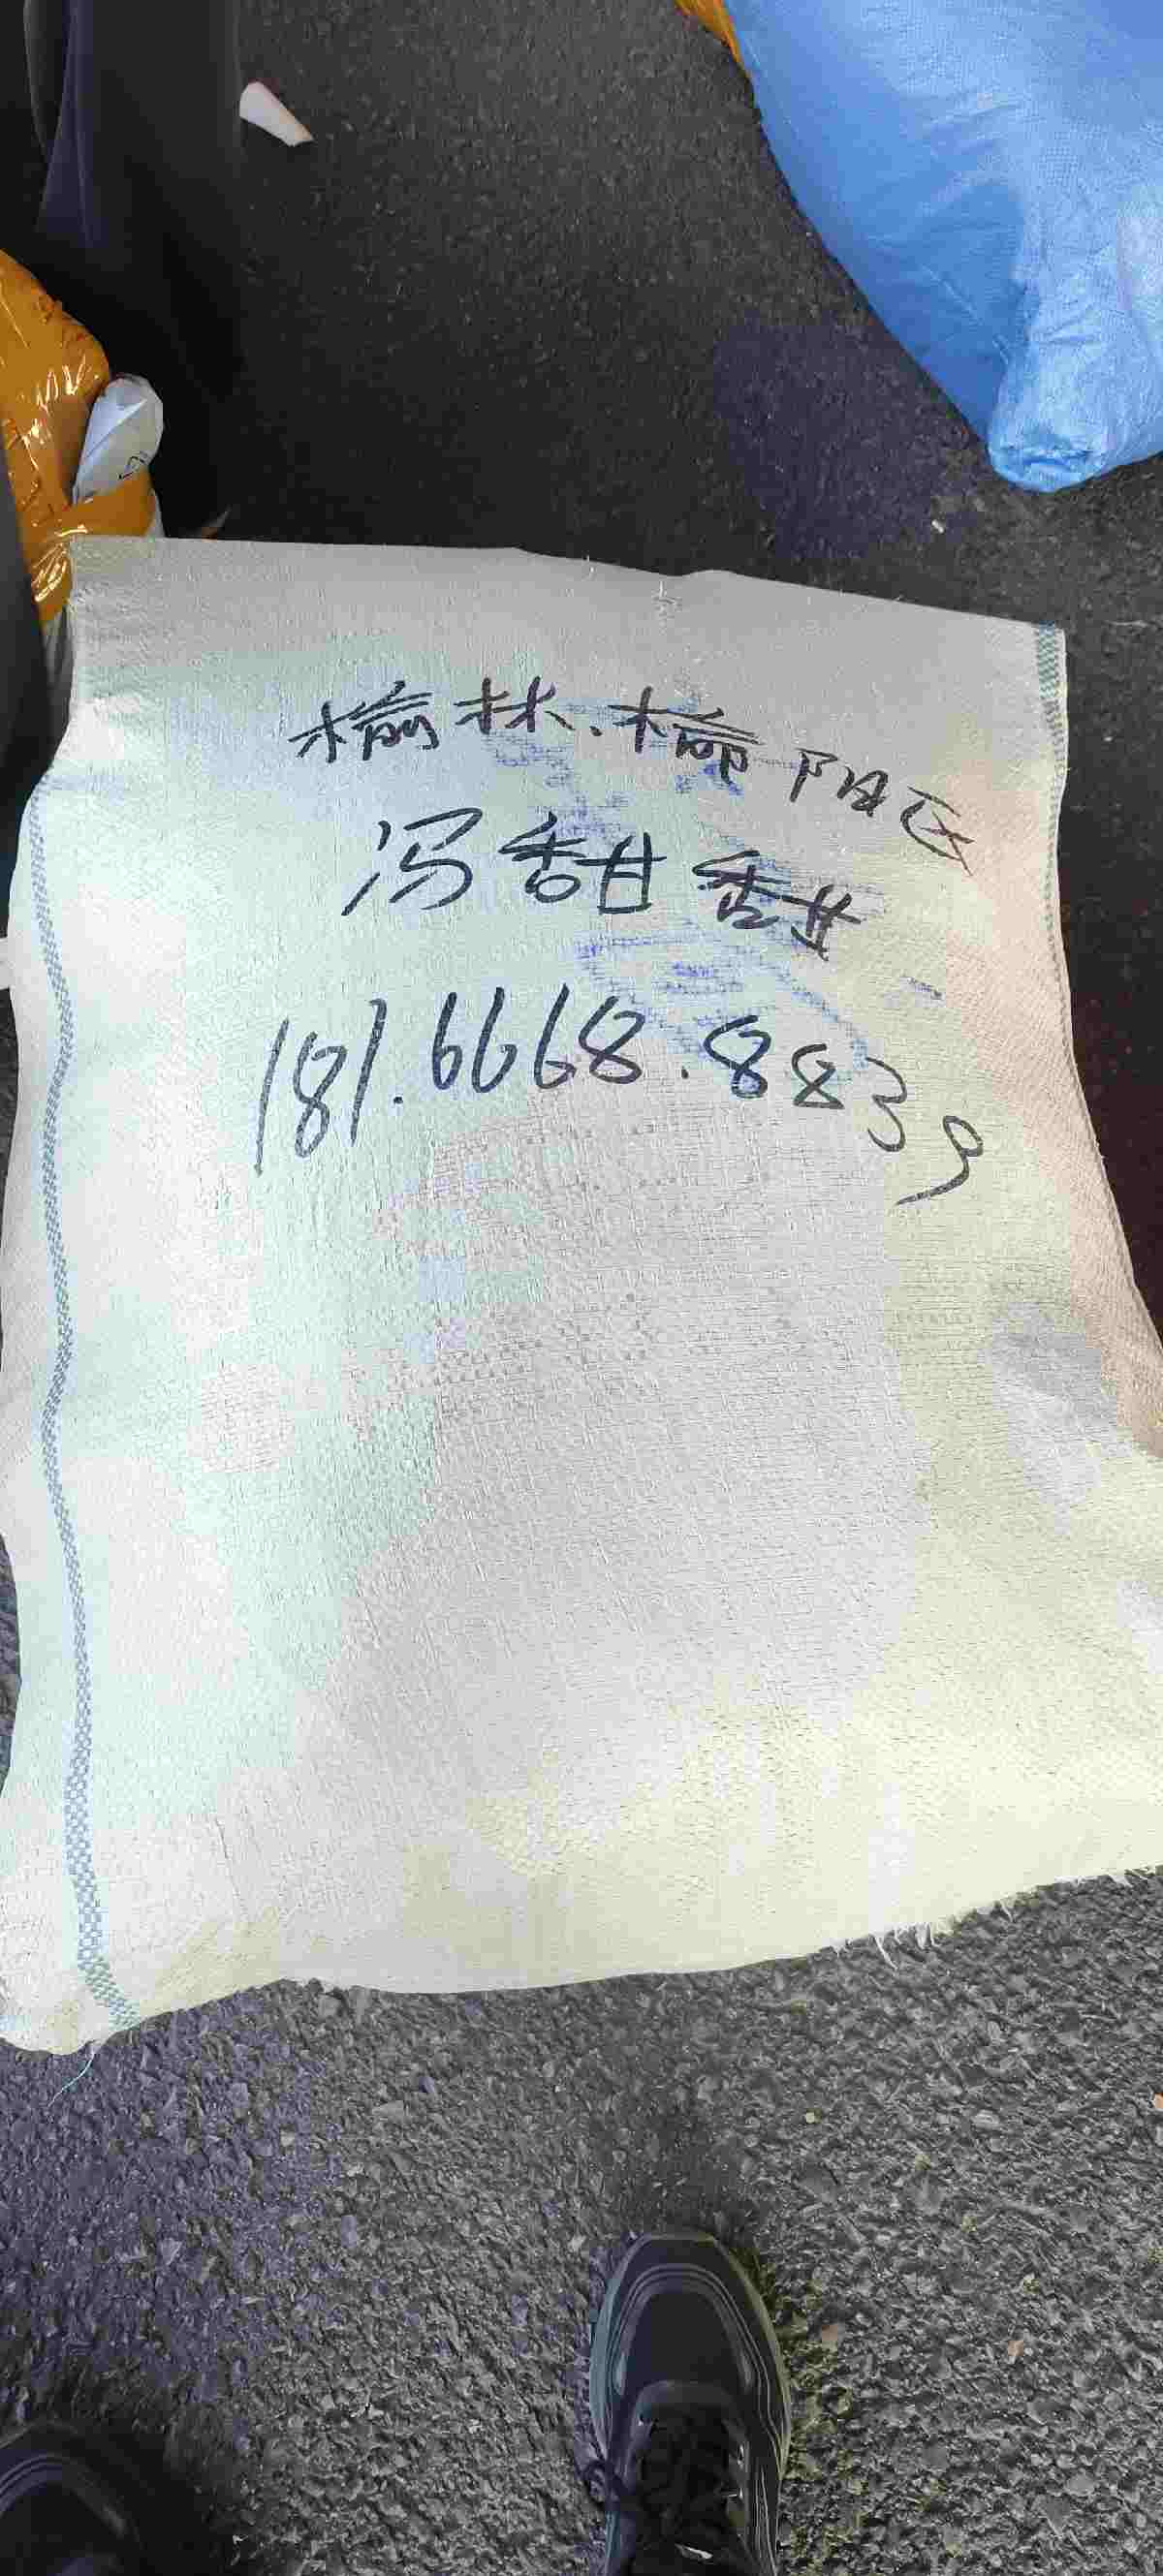 榆林.榆阳区
冯甜甜
181.6668.8839